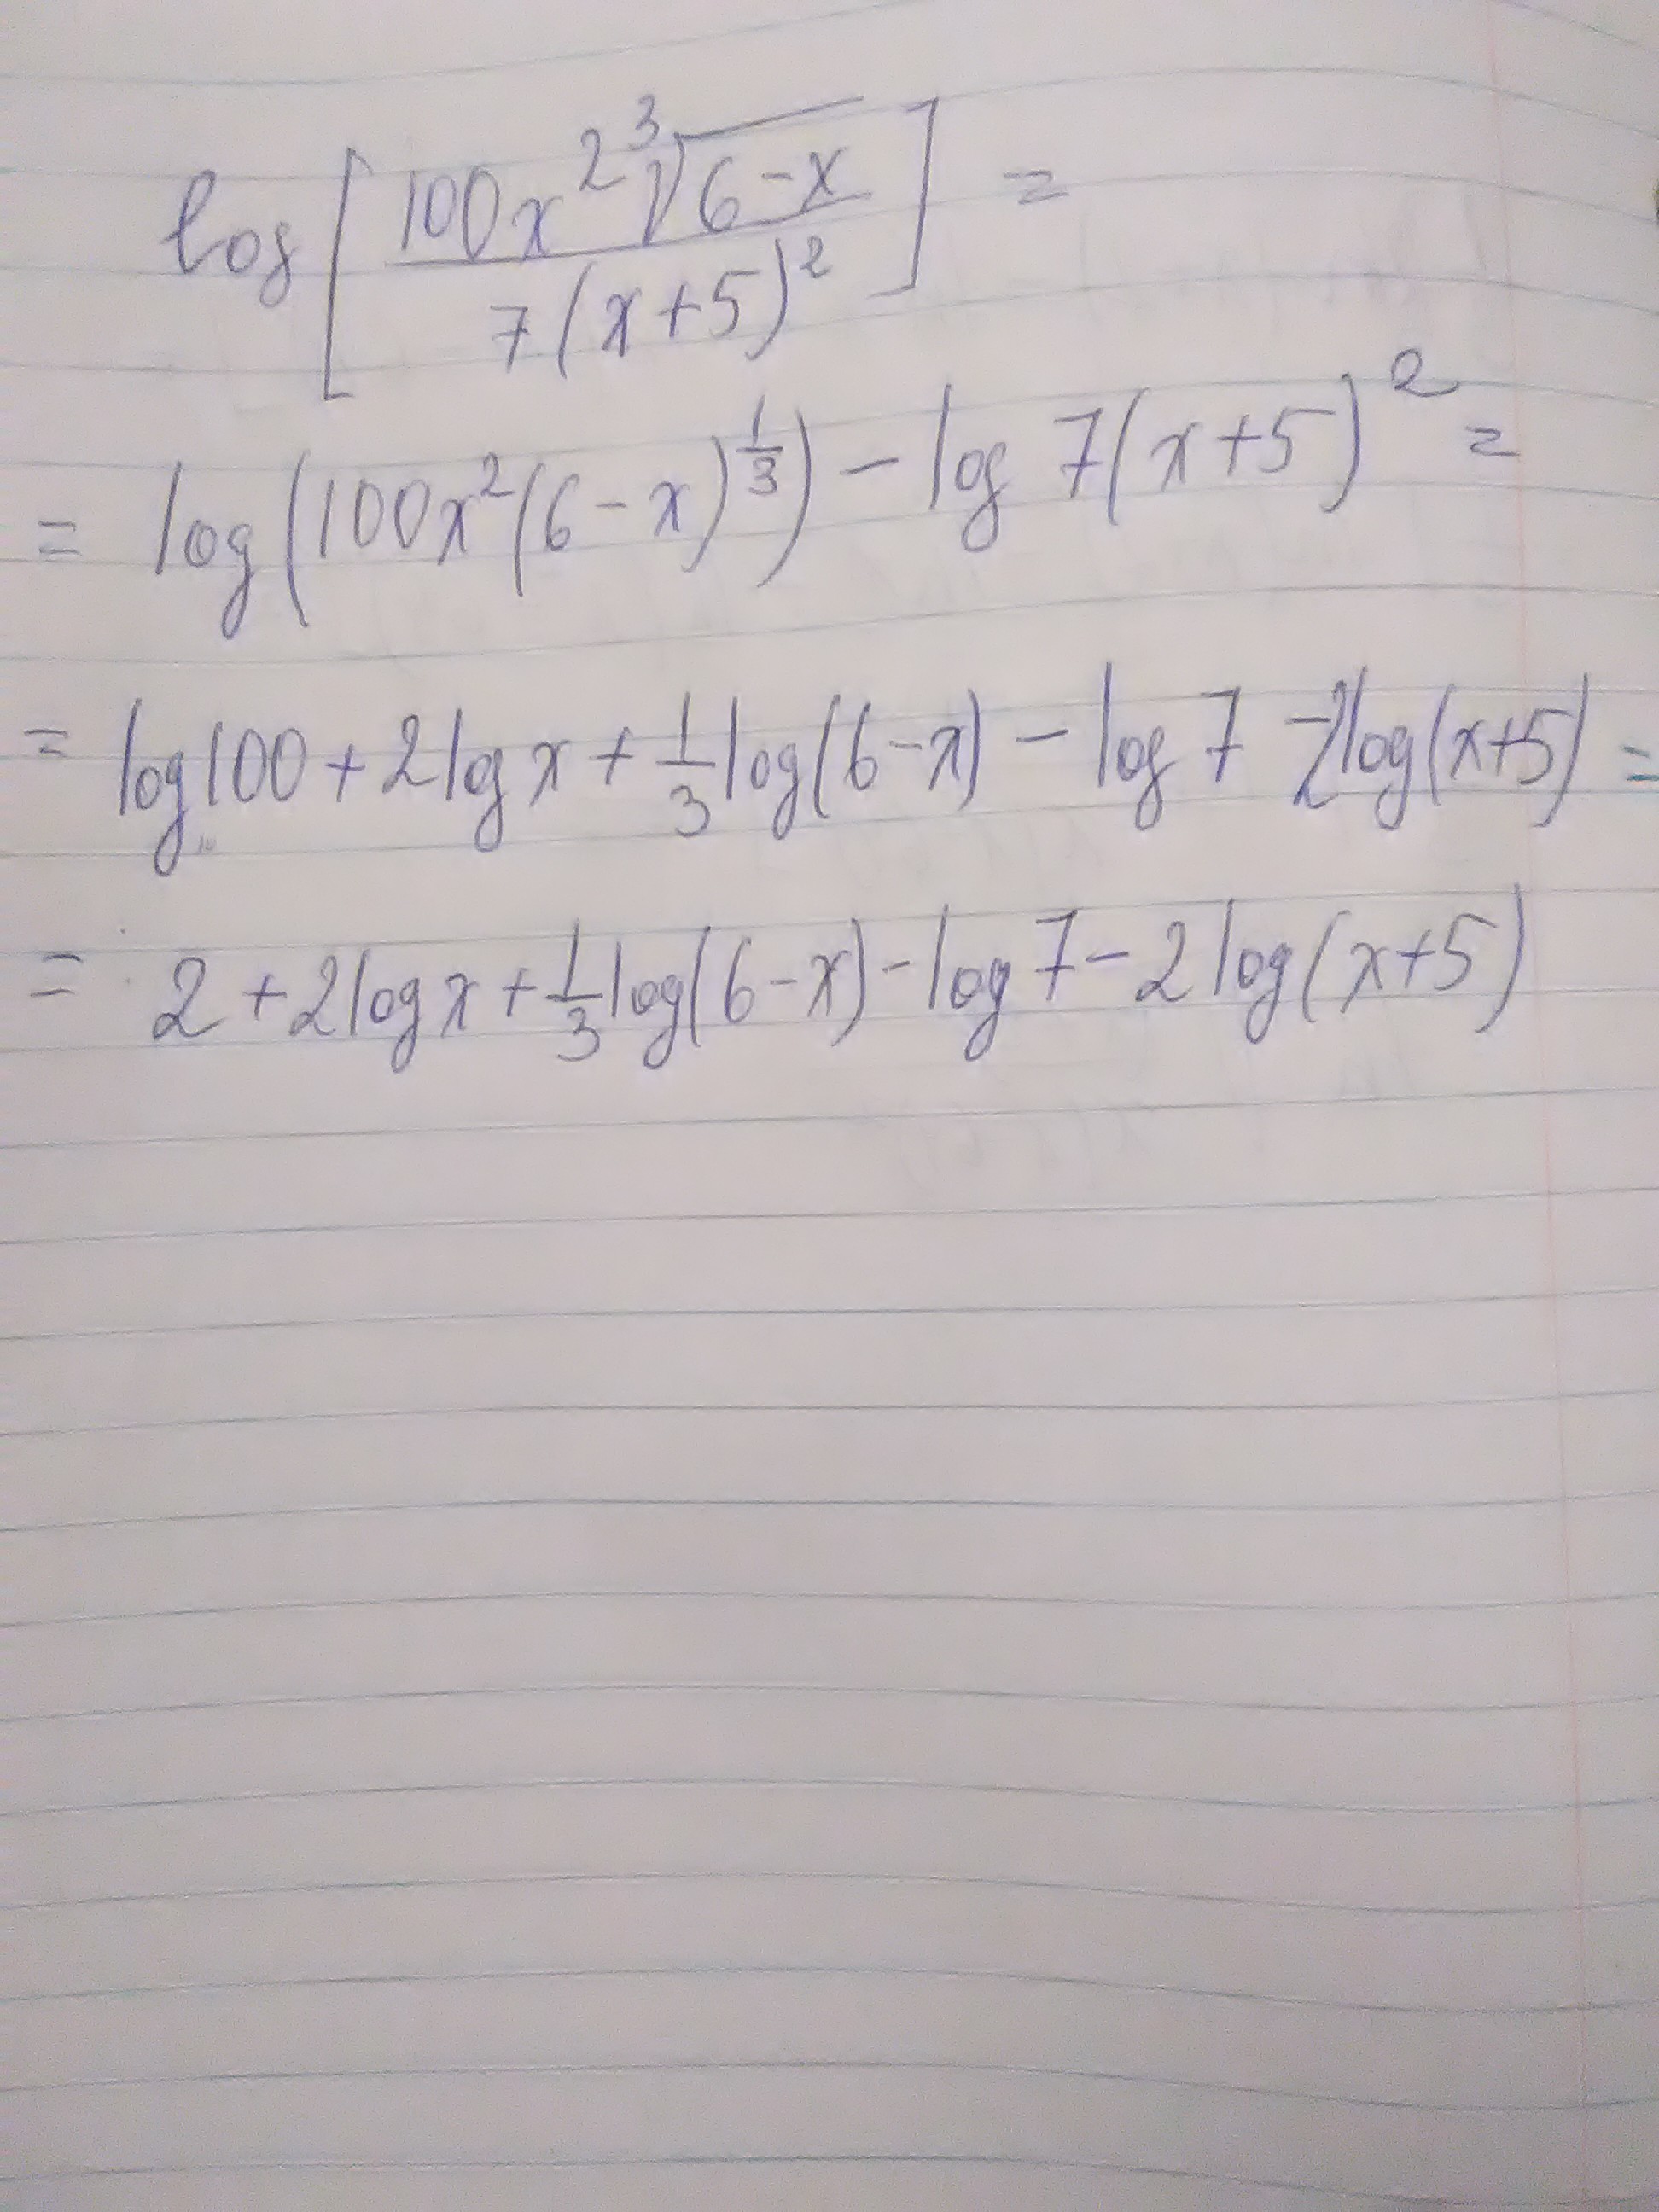 log[100x²∛(6-x) / 7(x+5)²] =
= log(100x²(6-x)^(1/3)) - log 7(x+5)² =
= log100 + 2logx + 1/3 log(6-x) - log 7 - 2log(x+5) =
= 2 + 2logx + 1/3 log(6-x) - log 7 - 2log(x+5)